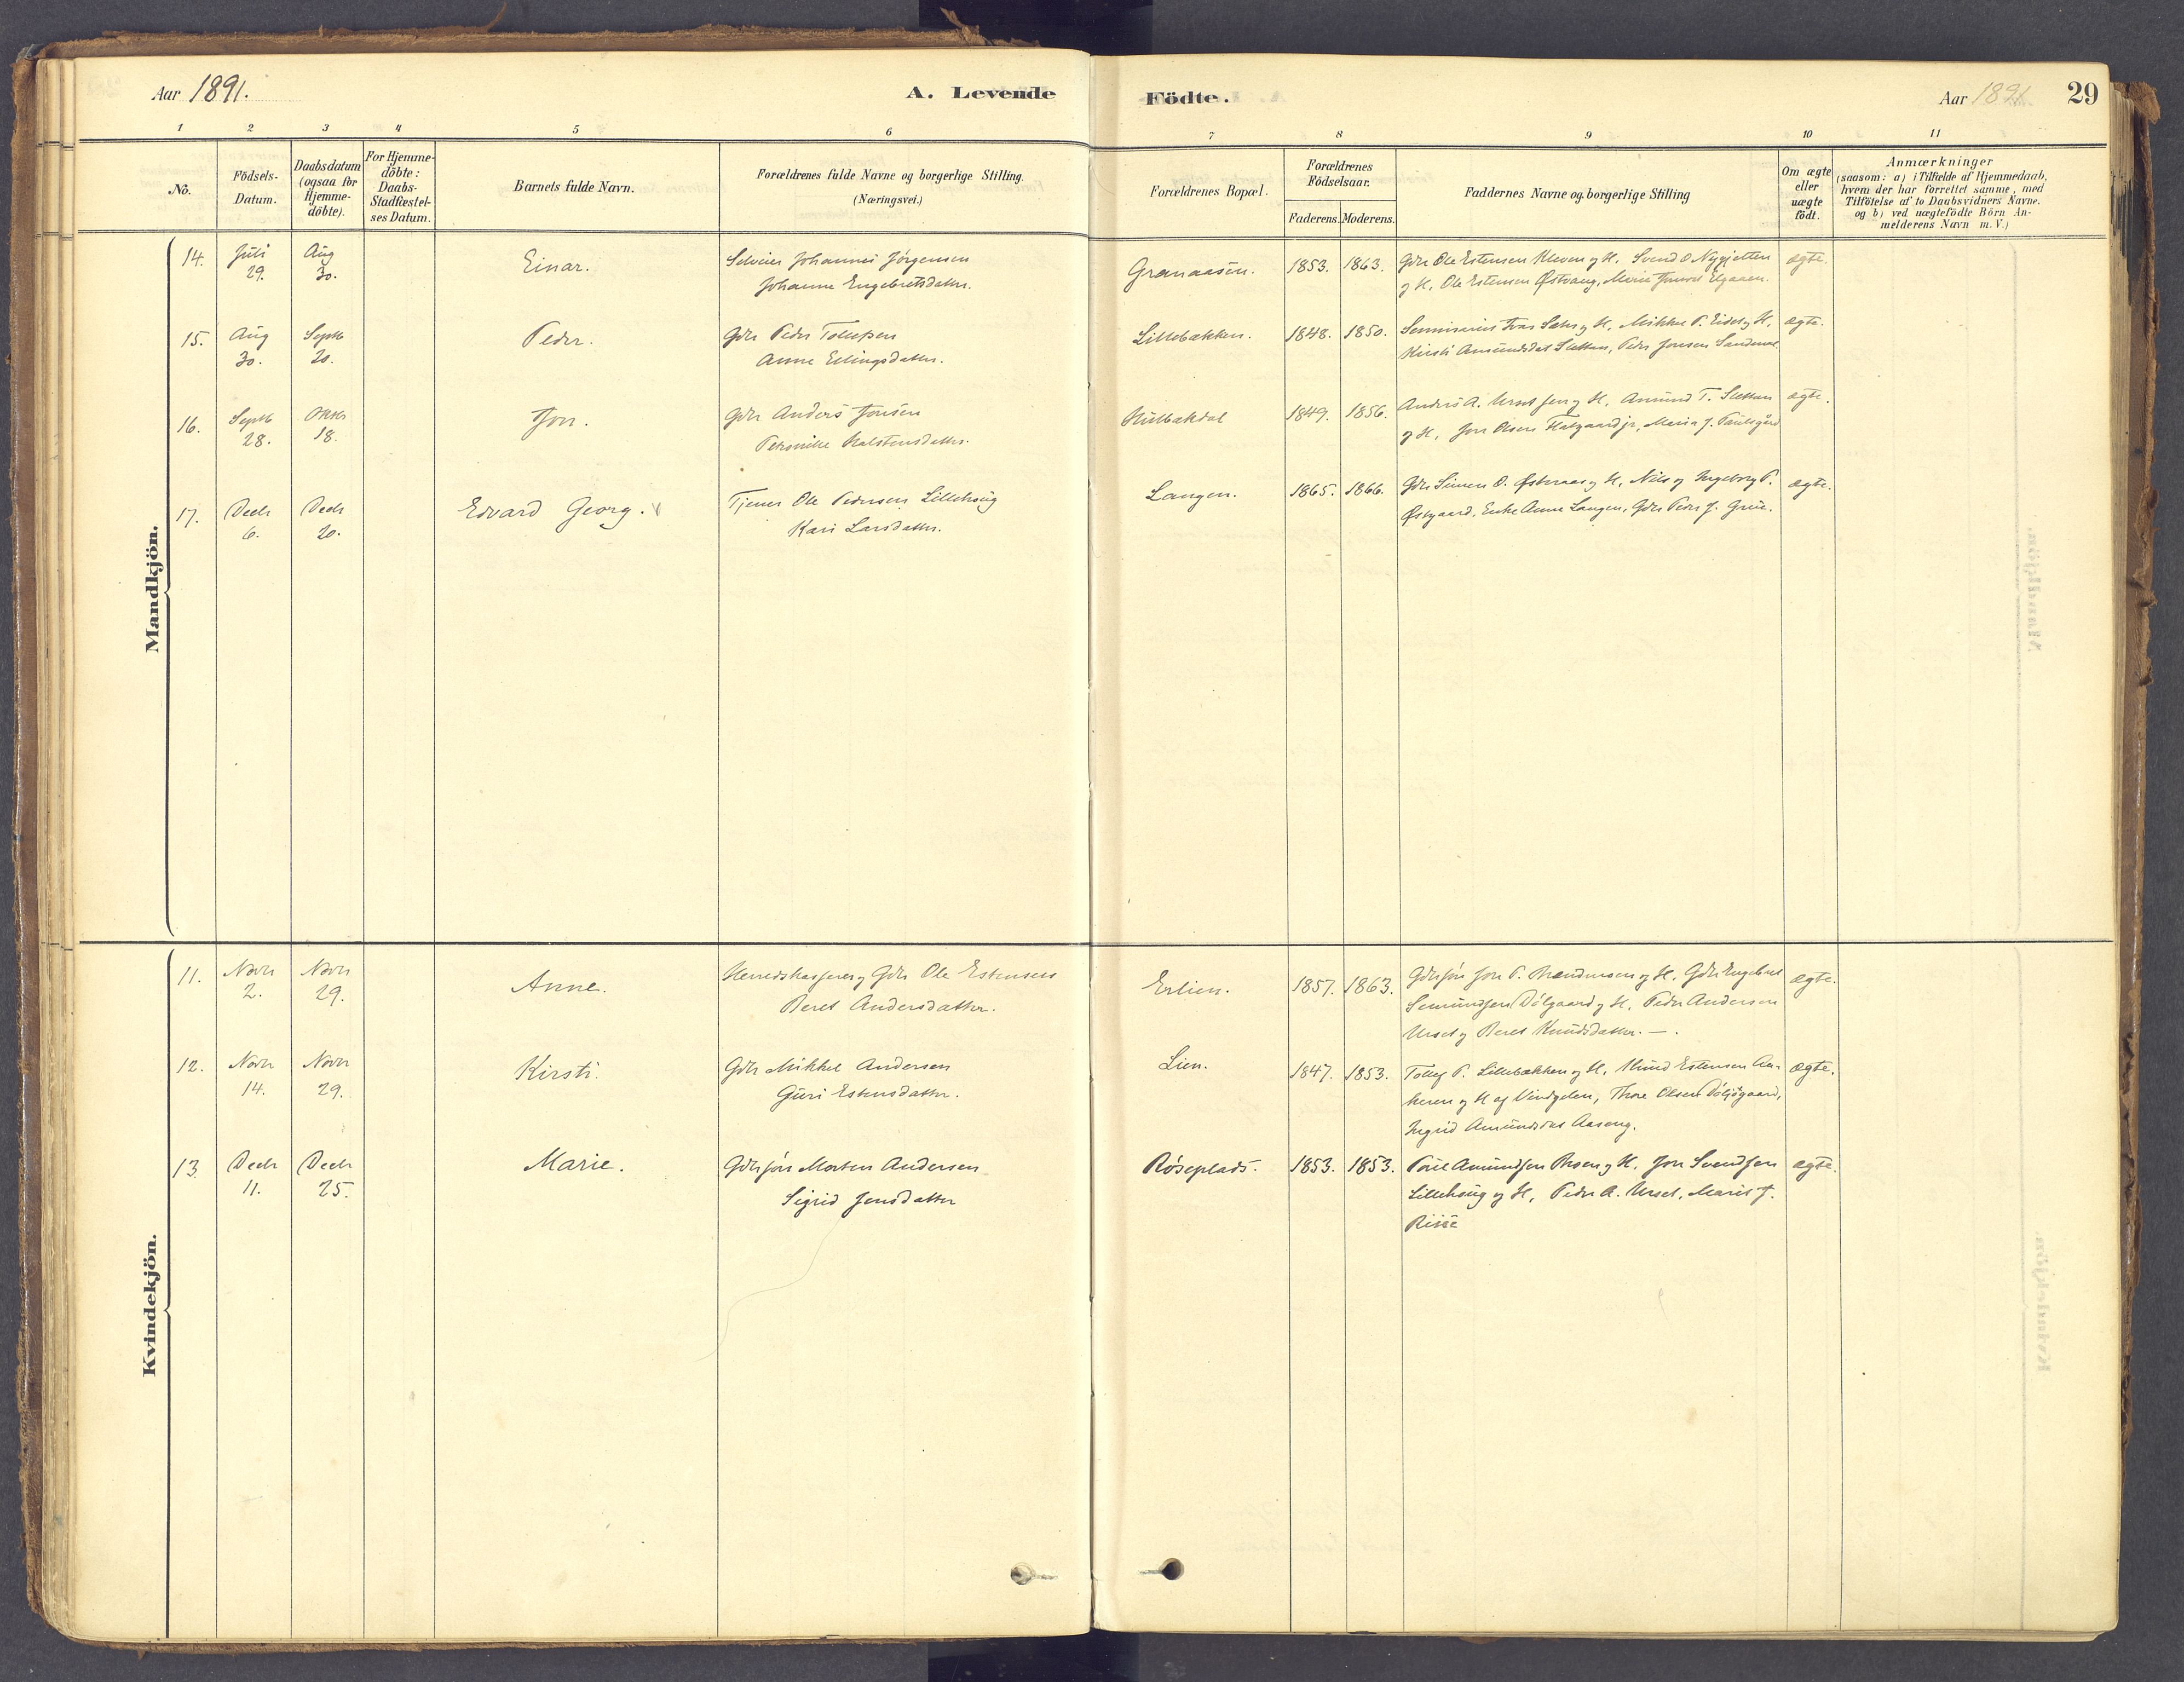 Aar 1891.
A. Levende Födte.
Aar 1891
29
1 2 3 4 5 6 7 8 9 10 11
No.
Födsels-Datum.
Daabsdatum (ogsaa for Hjemme-döbte).
For Hjemme-döbte: Daabs-Stadfæstel-ses Datum.
Barnets fulde Navn.
Forældrenes fulde Navne og borgerlige Stilling. (Næringsvei.)
Forældrenes Bopæl.
Forældrenes Födselsaar.
Faderens. Moderens.
Faddernes Navne og borgerlige Stilling
Om ægte eller uægte födt.
Anmærkninger
(saasom: a) i Tilfælde af Hjemmedaab,
hvem der har forrettet samme, med
Tilföielse af to Daabsvidners Navne.
og b) ved uægtefödte Börn An-
melderens Navn m. V.)
Mandkjön.
14. Juli 29. Aug 30. Einar. Selveier Johannes Jörgensen
Johanne Engebretsdatter.
Granaasen. 1853. 1863. Gdr Ole Estensen Kleven og H. Svend O. Nygjelten
og H. Ole Estensen Østvang, Marie Elgaaen. ægte.
15. Aug 30. Septb 20. Peder. Gdr Peder Tollefsen
Anne Erlingsdatter.
Lillebækken. 1848. 1850. Seminarist Ivar Sæter og H. Mikkel P. Eidet og H.
Kirsti Amundsdat Sletten, Peder Jonsen ægte.
16. Septb 28. Oktbr 18. Jon. Gdr Anders Jonsen
Petronille Halstensdatter.
1849. 1856. Anders A. Urset og H. Amund T. Sletten
og H. Jon Olsen jr, Maria J. ægte.
17. Decb 6. Decb 20. Edvard Georg. Tjener Ole Pedersen Lillehaug
Kari Larsdatter.
Langen. 1865. 1866. Gdr Simen O. Østeraas og H. Nils og Ingeborg P.
Østgaard, Enke Anne Langen, Gdr Peder J. ægte.
Kvindekjön.
11. Novbr 2. Novbr 29. Anne. Herredskasserer og Gdr Ole Estensen
Beret Andersdatter.
Erlien. 1857. 1863. Gdrsøn Jon P. og H. Gdr Engebret
Semundsen Dølgaard og H. Peder Andersen
Urset og Beret Knudsdatter. —. ægte.
12. Novbr 14. Novbr 29. Kirsti. Gdr Mikkel Andersen
Guri Estensdatter.
Lien. 1847. 1853. Tollef P. Lillebækken og H. Estensen
og H af Vindgelen, Thore Olsen
Ingrid Amundsdat Aaseng. ægte.
13. Decbr 11. Decbr 25. Marie. Gdrsøn Morten Andersen
Sigrid Jensdatter
Røseplads. 1853. 1853. Amundsen og H. Jon Svendsen
Lillehaug og H, Peder A. Urset, Marit J. ægte.